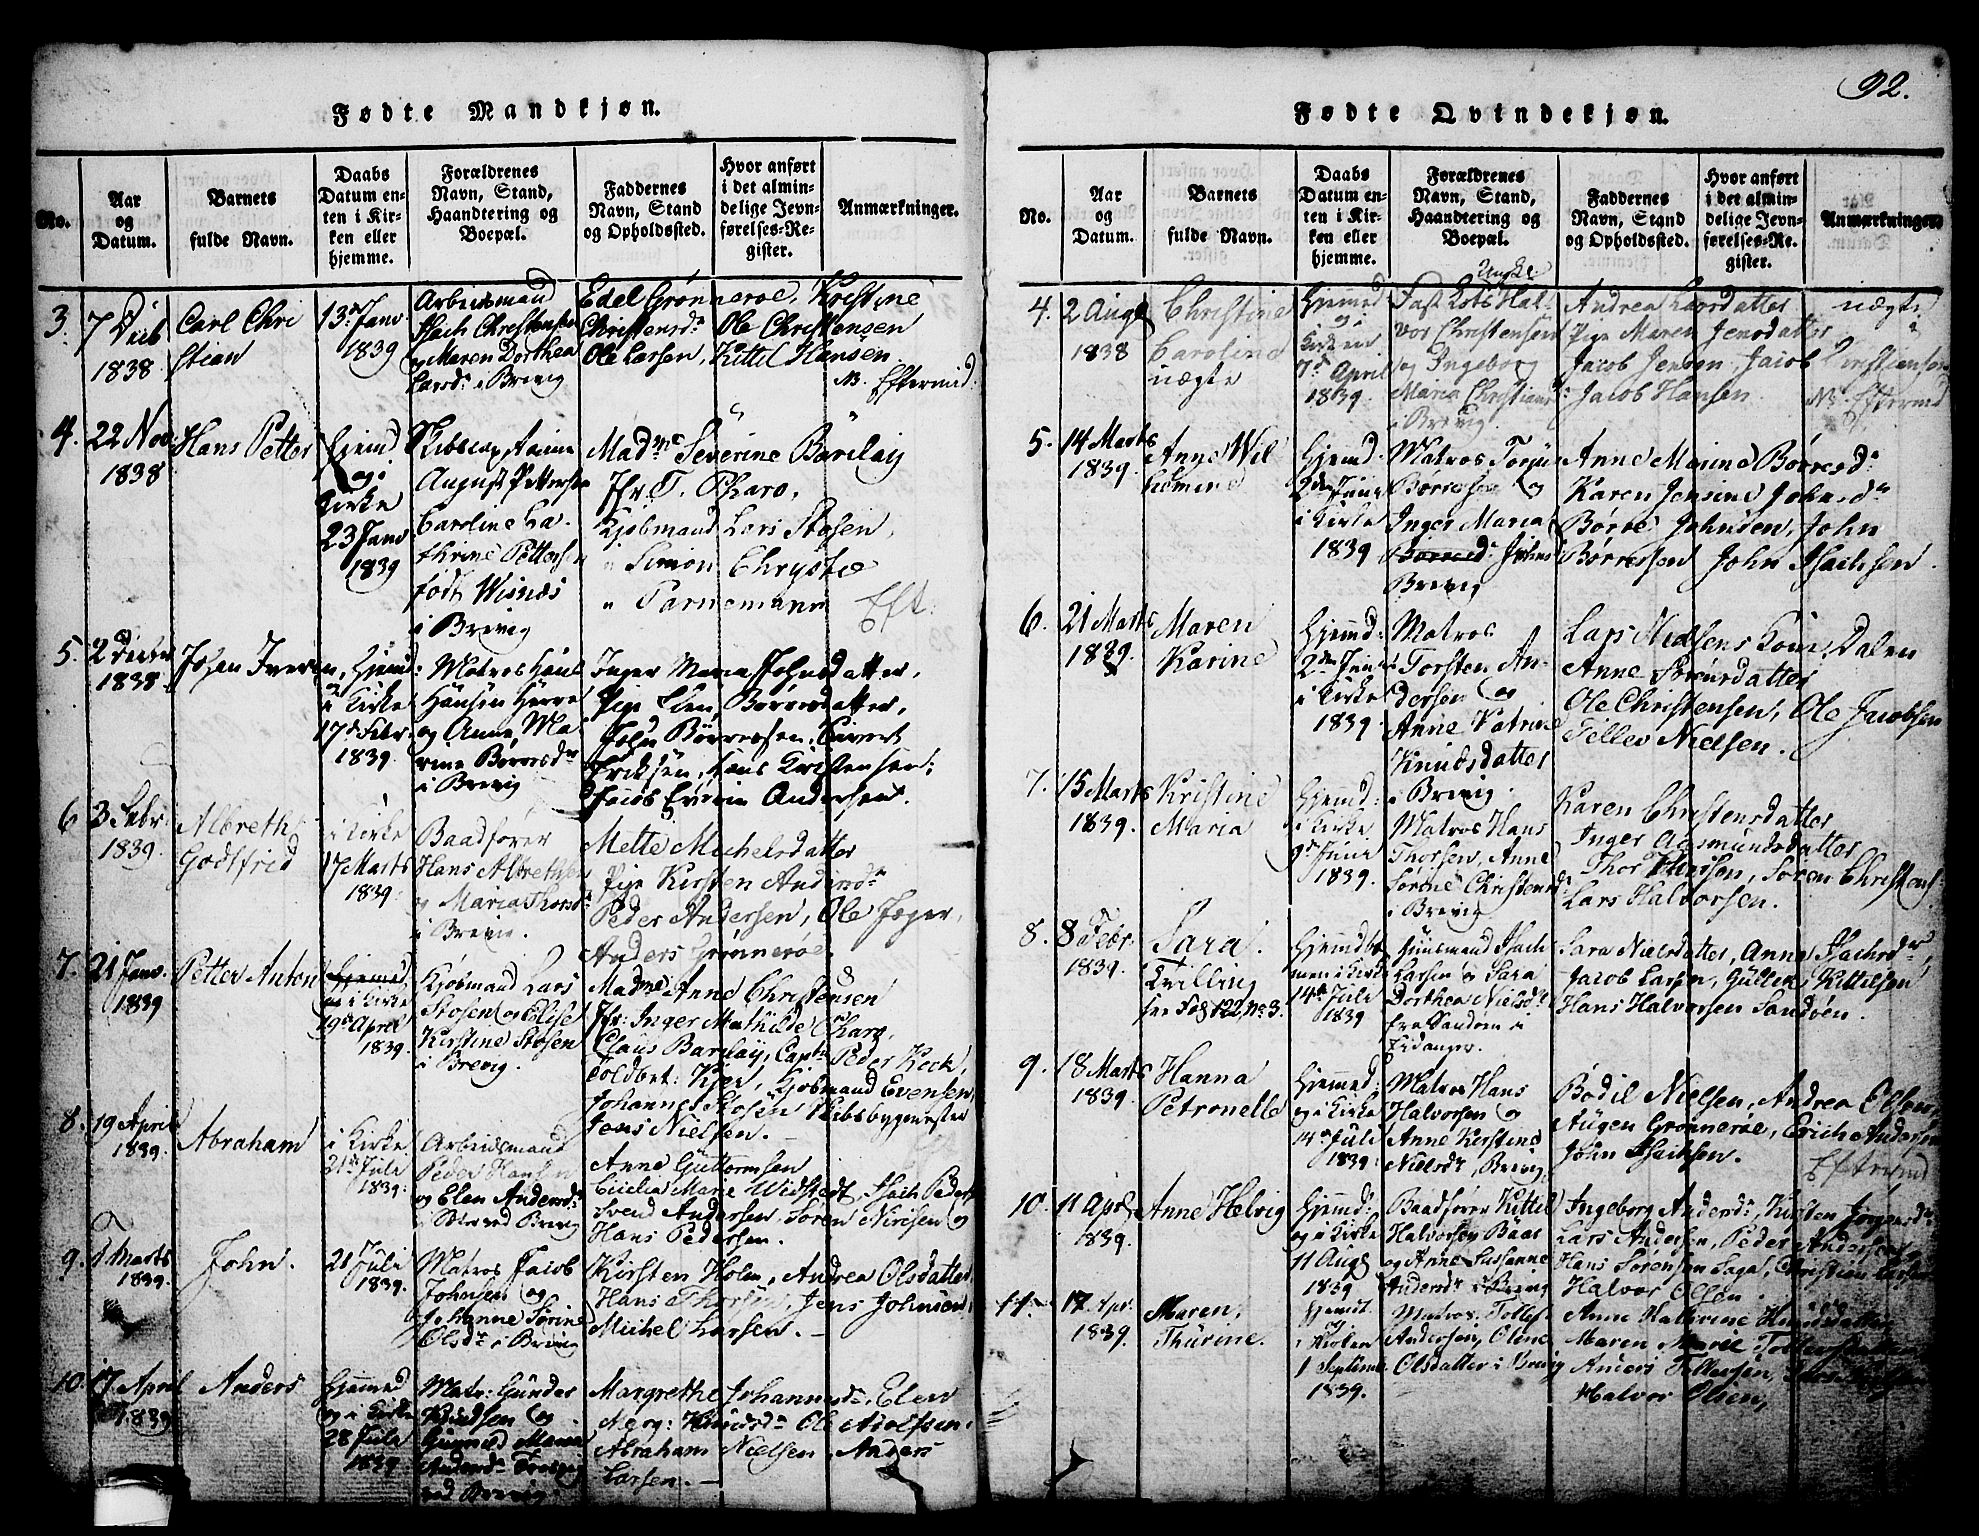 92.
Fødte Mandkjøn.
No.
Aar og Datum.
Barnets fulde Navn.
Daabs Datum enten i Kirken eller hjemme.
Forældrenes Navn, Stand, Haandtering og Boepæl.
Faddernes Navn, Stand og Opholdssted.
Hvor anført i det almindelige Jevnførelses-Register.
Anmærkninger.
3.
7 Decb
1838
Carl Chri
stian
13de Janv
1839
Arbeidsmand
Isach Christensen
og Maren Dorthea
Larsdr i Brevig
Edel Grønneroe, Kirstine
Christensdr Ole Christensen
Ole Larsen, Kittil Hansen.
Eftermid
4.
22 Nov:
1838
Hans Petter
Hjemd
og i
Kirke
23 Janv
1839
August Pettersen
Caroline Ca-
thrine Pettersen
født Wisnæs
i Brevig
Madme Severine Barclay
Jfr. T. Pharo,
Kjøbmand Lars Stosen,
" Simon Chrystie
" Parnemann
Eft:
5.
2 Decbr
1838
Johan Iversen,
Hjemd:
i Kirke
17de Febr.
1839.
Matros Hans
Hansen
og Anne Ma
rine Børresdr
i Brevig
Inger Maria Johnsdatter,
Pige Elen Børresdatter,
John Børresen, Eivert
Eriksen, Hans Christensen:
Jacob Andersen.
6
3 Febr
1839.
Albreth
Godtfried
i Kirke
17 Marts
1839.
Baadfører
Hans Albrethsen
og Maria Thorsdr
i Brevig.
Mette Michelsdatter
Pige Kirsten Andersdr
Peder Andersen, Ole Jæger,
Anders Grønneroe
7.
21 Janv.
1839
Petter Anton
Hjemed
i Kirke
19de April
1839.
Kjøbmand Lars
Stosen og Elise
Kirstine Stosen
i Brevig.
Madme Anne Christensen
Jfr: Inger Mathilde Pharo,
Claus Barclay, Captn Peder Keck,
Toldbet: Kjær, Kjøbmand Evensen,
Johannes Stosen Skibsbygmester
Jens Nielsen.
8.
19 April
1839.
Abraham
i Kirke
21de Juli
1839.
Arbeidsmand
Peder Hansen
og Elen Andersdr
ved Brevig
Anne Guttormsen
Cicilia Marie Widstedt, Isach Peders
Svend Andersen, Søren Nielsen og
Hans Pedersen.
9.
Marts
1839.
John.
21 Juli
1839.
Matros Jacob
Johnsen og
Johanne Sørine
Olsdr i Brevig
Kirsten Holm, Andrea Olsdatter
Hans Thorsen, Jens Johnsen,
Michel Larsen.
10.
17 April
1839
Anders
Hjemed
og i Kirke
28 Juli
1839.
Matr: Gunder
Knudsen og
Gunnild Maria
Andersdr
ved Brevig.
Margrethe Johannesdr, Elen
Marg: Knudsdr Ole Nielsen,
Abraham Nielsen, Anders
Larsen.
Fødte Qvindekjøn.
No.
Aar og Datum.
Barnets fulde Navn.
Daabs Datum enten i Kirken eller hjemme.
Forældrenes Navn, Stand, Haandtering og Boepæl.
Faddernes Navn, Stand og Opholdssted.
Hvor anført i det almindelige Jevnførelses-Register.
Anmærkninger.
4.
2 Aug
1838
Christine
Caroline
uægte
Hjemed
og i
Kirken
7de April
1839.
Ungkl.
Fast Lots Hal-
vor Christensen
og Ingeborg
Maria Christians
i Brevig.
Andrea Larsdatter
Pige Maren Jensdatter
Jacob Jensen, Jacob
Jacob Hansen.
uægte
Eftermid
5.
14 Marts
1839.
Anne Wil
helmine
Hjemd:
2den Juni
i Kirke
1839
Matros Torju
Børresen og
Inger Maria
Johns
Brevig
Anne Marine Børresd:
Karen Jensine Johnsdr
Børre Johnsen, John
Børresen John Isachsen.
6.
21 Marts
1839.
Maren
Karine
Hjemd:
2den Juni
i Kirke
1839.
Matros
Torsten An-
dersen og
Anne Katrine
Knudsdatter
i Brevig.
Lars Nielsens Kone, Dalen
Anne Sørensdatter
Ole Christensen, Ole Jacobsen
Tellev Nielsen.
7.
15 Marts
1839.
Kristine
Maria
Hjemd:
i Kirke
9de Juni
1839.
Matros Hans
Thorsen, Anne
Sørine Christensdr
i Brevig
Karen Christensdatter
Inger Aasmundsdatter
Thor Hansen, Søren Christens
Lars Halvorsen.
8.
8 Febr.
1839.
Sara.
Tvilling
see Fol 122, No 3.
14de Juli
1839
Huusmand Isach
Larsen og Sara
Dorthea Nielsdr
fra Sandøen i
Eidanger.
Sara Nielsdatter, Anne Isachsdr,
Jacob Larsen, Gullek Kittilsen
Hans Halvorsen Sandøen.
9.
18 Marts
1839.
Hanna
Petronelle
Hjemed:
og i Kirke
14de Juli
1839.
Matros Hans
Halvorsen og
Anne Kirstine
Nielsdr, Brevig
Bodil Nielsen, Andrea Olsen,
Augen Grønneroe, Erich Andersen
John Isachsen.
Eftermid
10.
11 April
1839.
Anne Helvig
Hjemd:
og i Kirke
11 Aug
1839
Baadfører Kittel
Halvorsen Baas
og Anne Susanne
Andersdr i Brevig
Ingeborg Andersdr, Kirsten Jørgensdr
Lars Andersen, Peder Andersen
Hans Sørensen Saga, Christian Larsen
Halvor Olsen.
11.
17 Apr.
1839.
Maren,
Thurine.
Hjemt.
og
i Kirken
1 Septme
1839.
Matros Tellef
Andersen, Oline
Olsdatter i Brevig
Anne Kathrine Knudsdatter
Maren Marie Tollefsen
Anders Tellefsen,
Halvor Olsen,